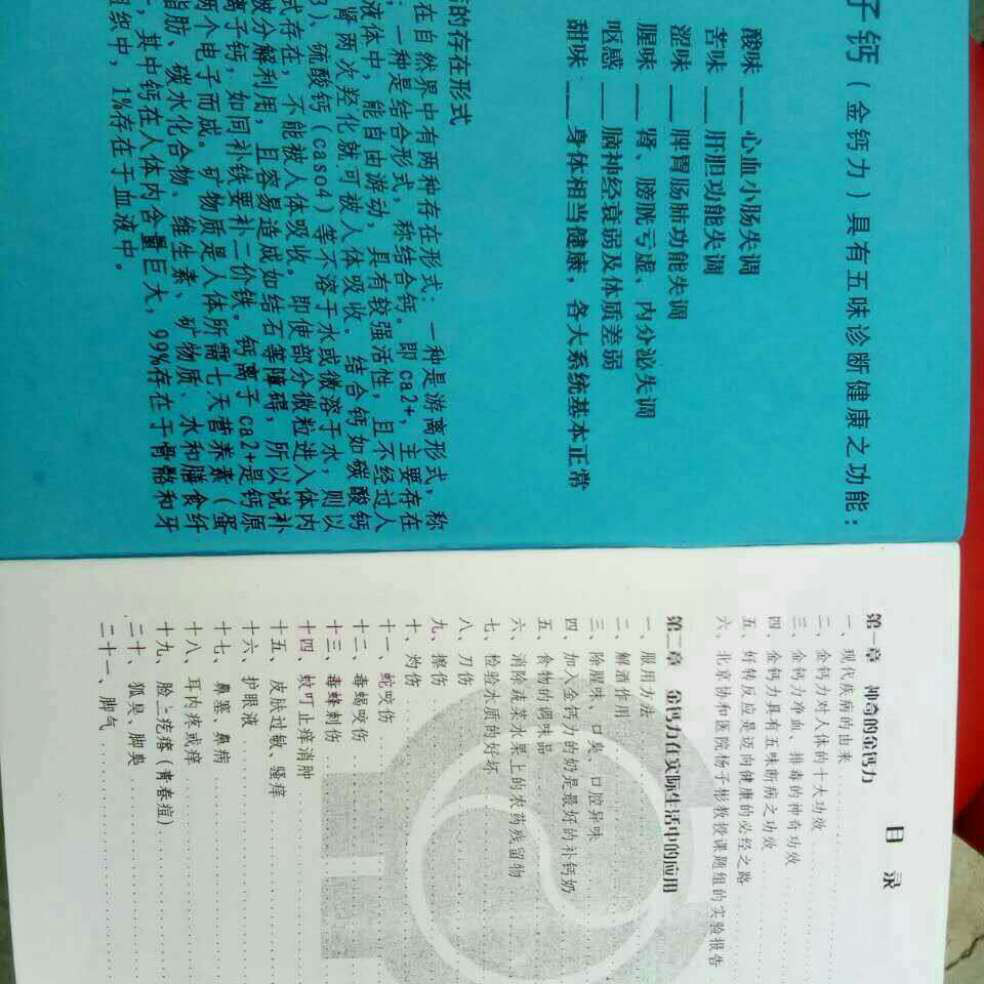 子钙（金钙力）具有五味诊断健康之功能：
酸味 ___ 心血小肠失调
苦味 ___ 肝胆功能失调
涩味 ___ 脾胃肠肺功能失调
腥味 ___ 肾、膀胱亏虚、内分泌失调
呕感 ___ 脑神经衰弱及体质差弱
甜味 ___ 身体相当健康，各大系统基本正常
的存在形式
在自然界中有两种存在形式：一种是游离形式，称
；一种是结合形式，称结合钙。即ca2+，主要存在
液体中，能自由游动，具有较强活性，且不经过人
肾两次羟化就可被人体吸收。结合钙如碳酸钙
3）、硫酸钙（caso4）等不溶于水或微溶于水，则以
式存在，不能被人体吸收。即使部分微粒进入体内
被分解利用，且容易造成如结石等障碍，所以说补
离子钙，如同补铁要补二价铁。钙离子ca2+是钙原
两个电子而成。矿物质是人体所需七大营养素（蛋
脂肪、碳水化合物、维生素、矿物质、水和膳食纤
，其中钙在人体内含量巨大，99%存在于骨骼和牙
组织中，1%存在于血液中。
目 录
第一章 神奇的金钙力
一、现代疾病的由来
二、金钙力对人体的十大功效
三、金钙力净血、排毒的神奇功效
四、金钙力具有五味断病之功效
五、好转反应是迈向健康的必经之路
六、北京协和医院杨子彬教授课题组的实验报告
第二章 金钙力在实际生活中的应用
一、服用方法
二、解酒作用
三、除腥味、口臭、口腔异味
四、加入金钙力的奶是最好的补钙奶
五、食物的调味品
六、消除蔬菜水果上的农药残留物
七、检验水质的好坏
八、刀伤
九、擦伤
十、灼伤
十一、蛇咬伤
十二、毒蝎咬伤
十三、毒蜂刺伤
十四、蚊叮止痒消肿
十五、皮肤过敏、骚痒
十六、护眼液
十七、鼻塞、鼻病
十八、耳内疼或痒
十九、脸上疙瘩（青春痘）
二十、狐臭、脚臭
二十一、脚气